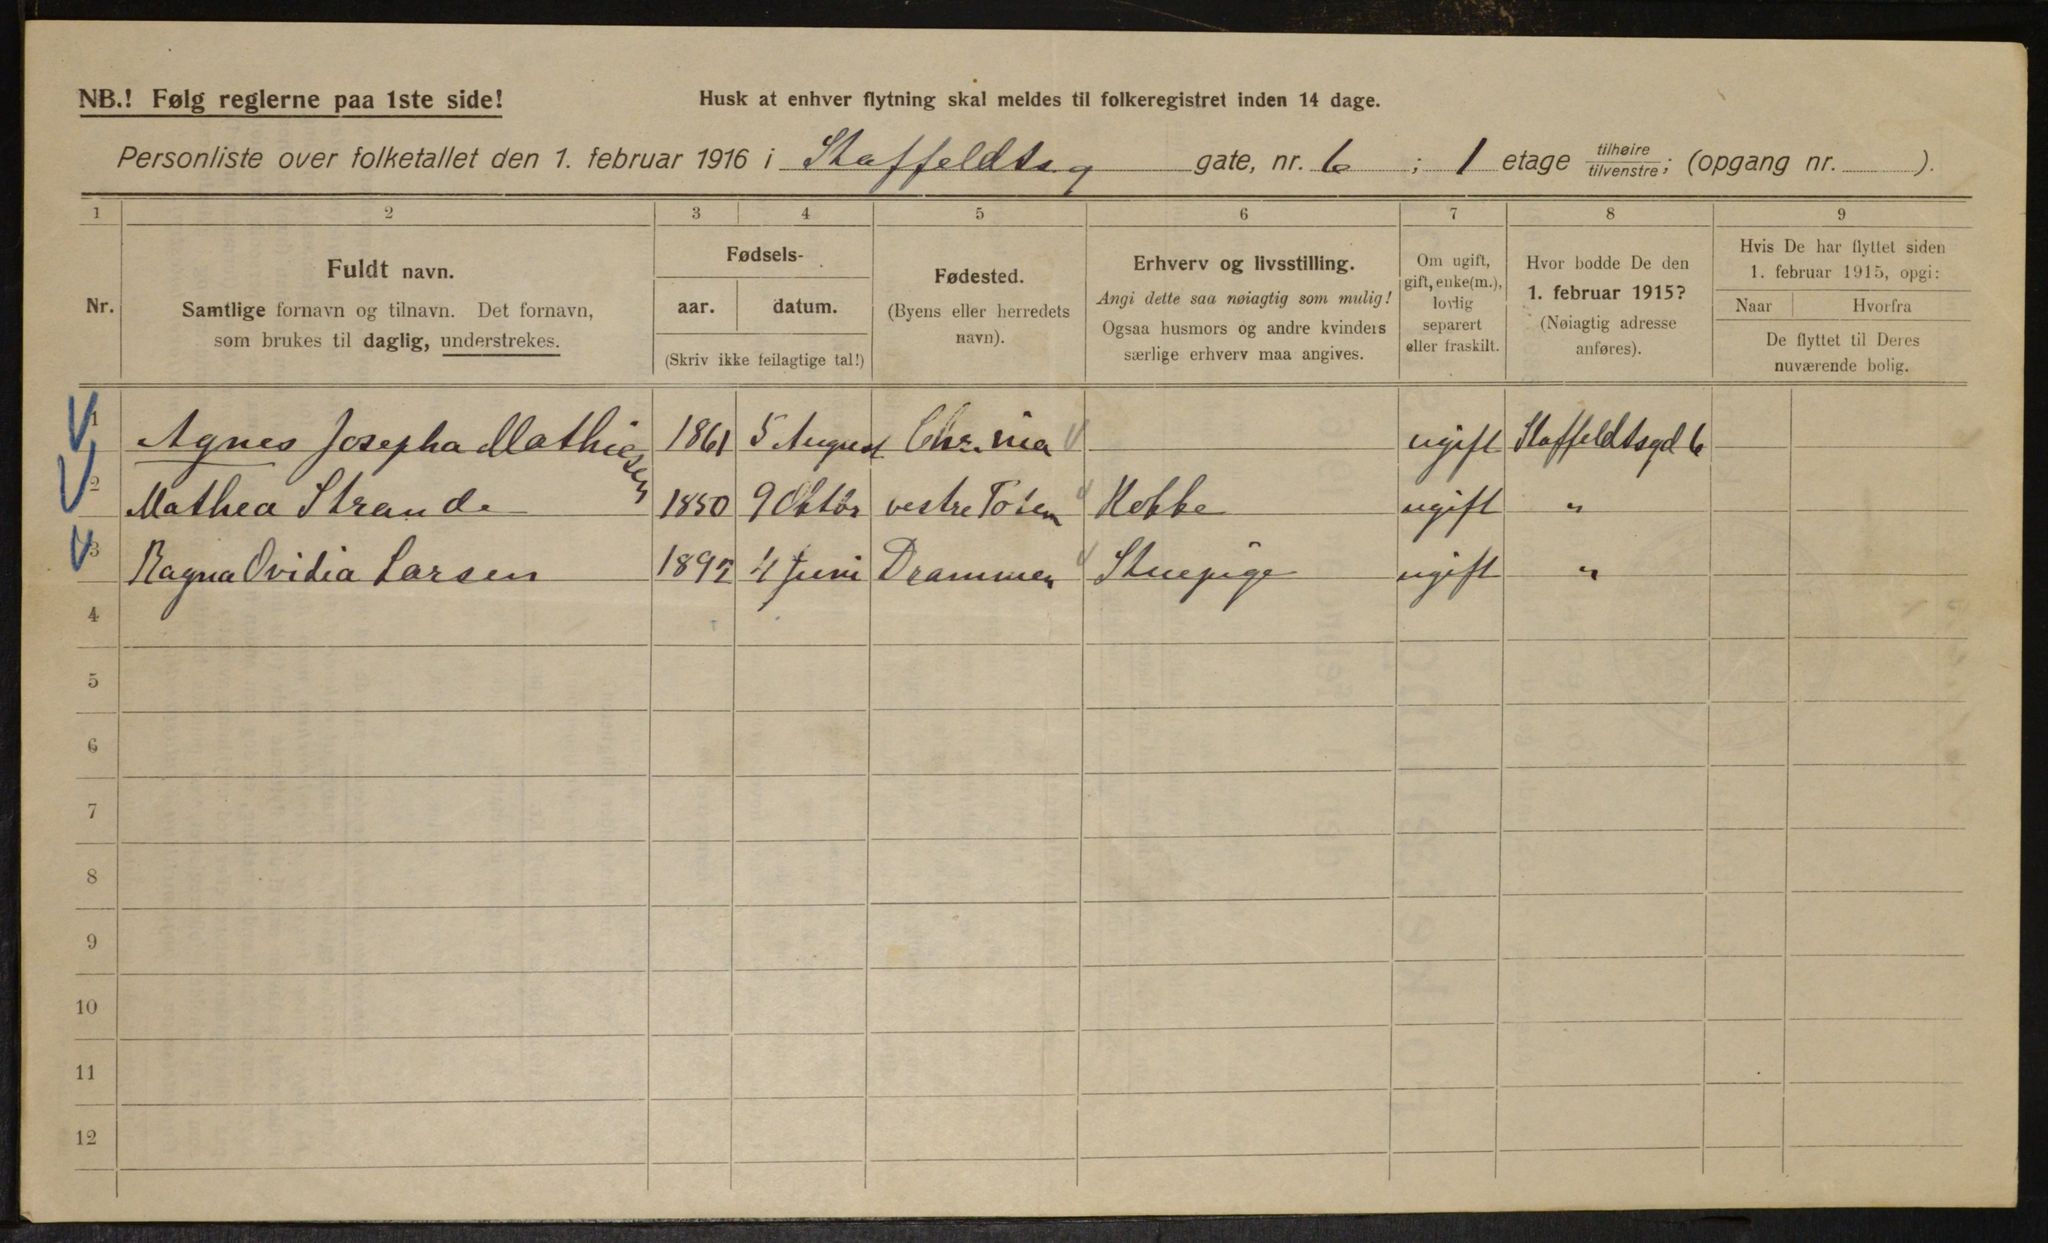 NB.! Følg reglerne paa 1ste side!
Husk at enhver flytning skal meldes til folkeregistret inden 14 dage.
Personliste over folketallet den 1. februar 1916 i Staffeldtsg gate, nr. 6 ; 1 etage tilhøire/tilvenstre; (opgang nr. ).
1 2 3 4 5 6 7 8 9
Nr.
Fuldt navn.
Samtlige fornavn og tilnavn. Det fornavn,
som brukes til daglig, understrekes.
Fødsels-
aar. datum.
(Skriv ikke feilagtige tal!)
Fødested.
(Byens eller herredets
navn).
Erhverv og livsstilling.
Angi dette saa nøiagtig som mulig!
Ogsaa husmors og andre kvinders
særlige erhverv maa angives.
Om ugift,
gift, enke(m.),
lovlig
separert
eller fraskilt.
Hvor bodde De den
1. februar 1915?
(Nøiagtig adresse
anføres).
Hvis De har flyttet siden
1. februar 1915, opgi:
Naar Hvorfra
De flyttet til Deres
nuværende bolig.
1 Agnes Josepha Mathiesen 1861 5 August Chr.nia ugift Staffeldtsgd 6
2 Mathea Strande 1850 9 Oktbr vestre Toten Kokke ugift "
3 Ragna Ovidia Larsen 1892 4 Juni Drammen Stuepige ugift "
4
5
6
7
8
9
10
11
12